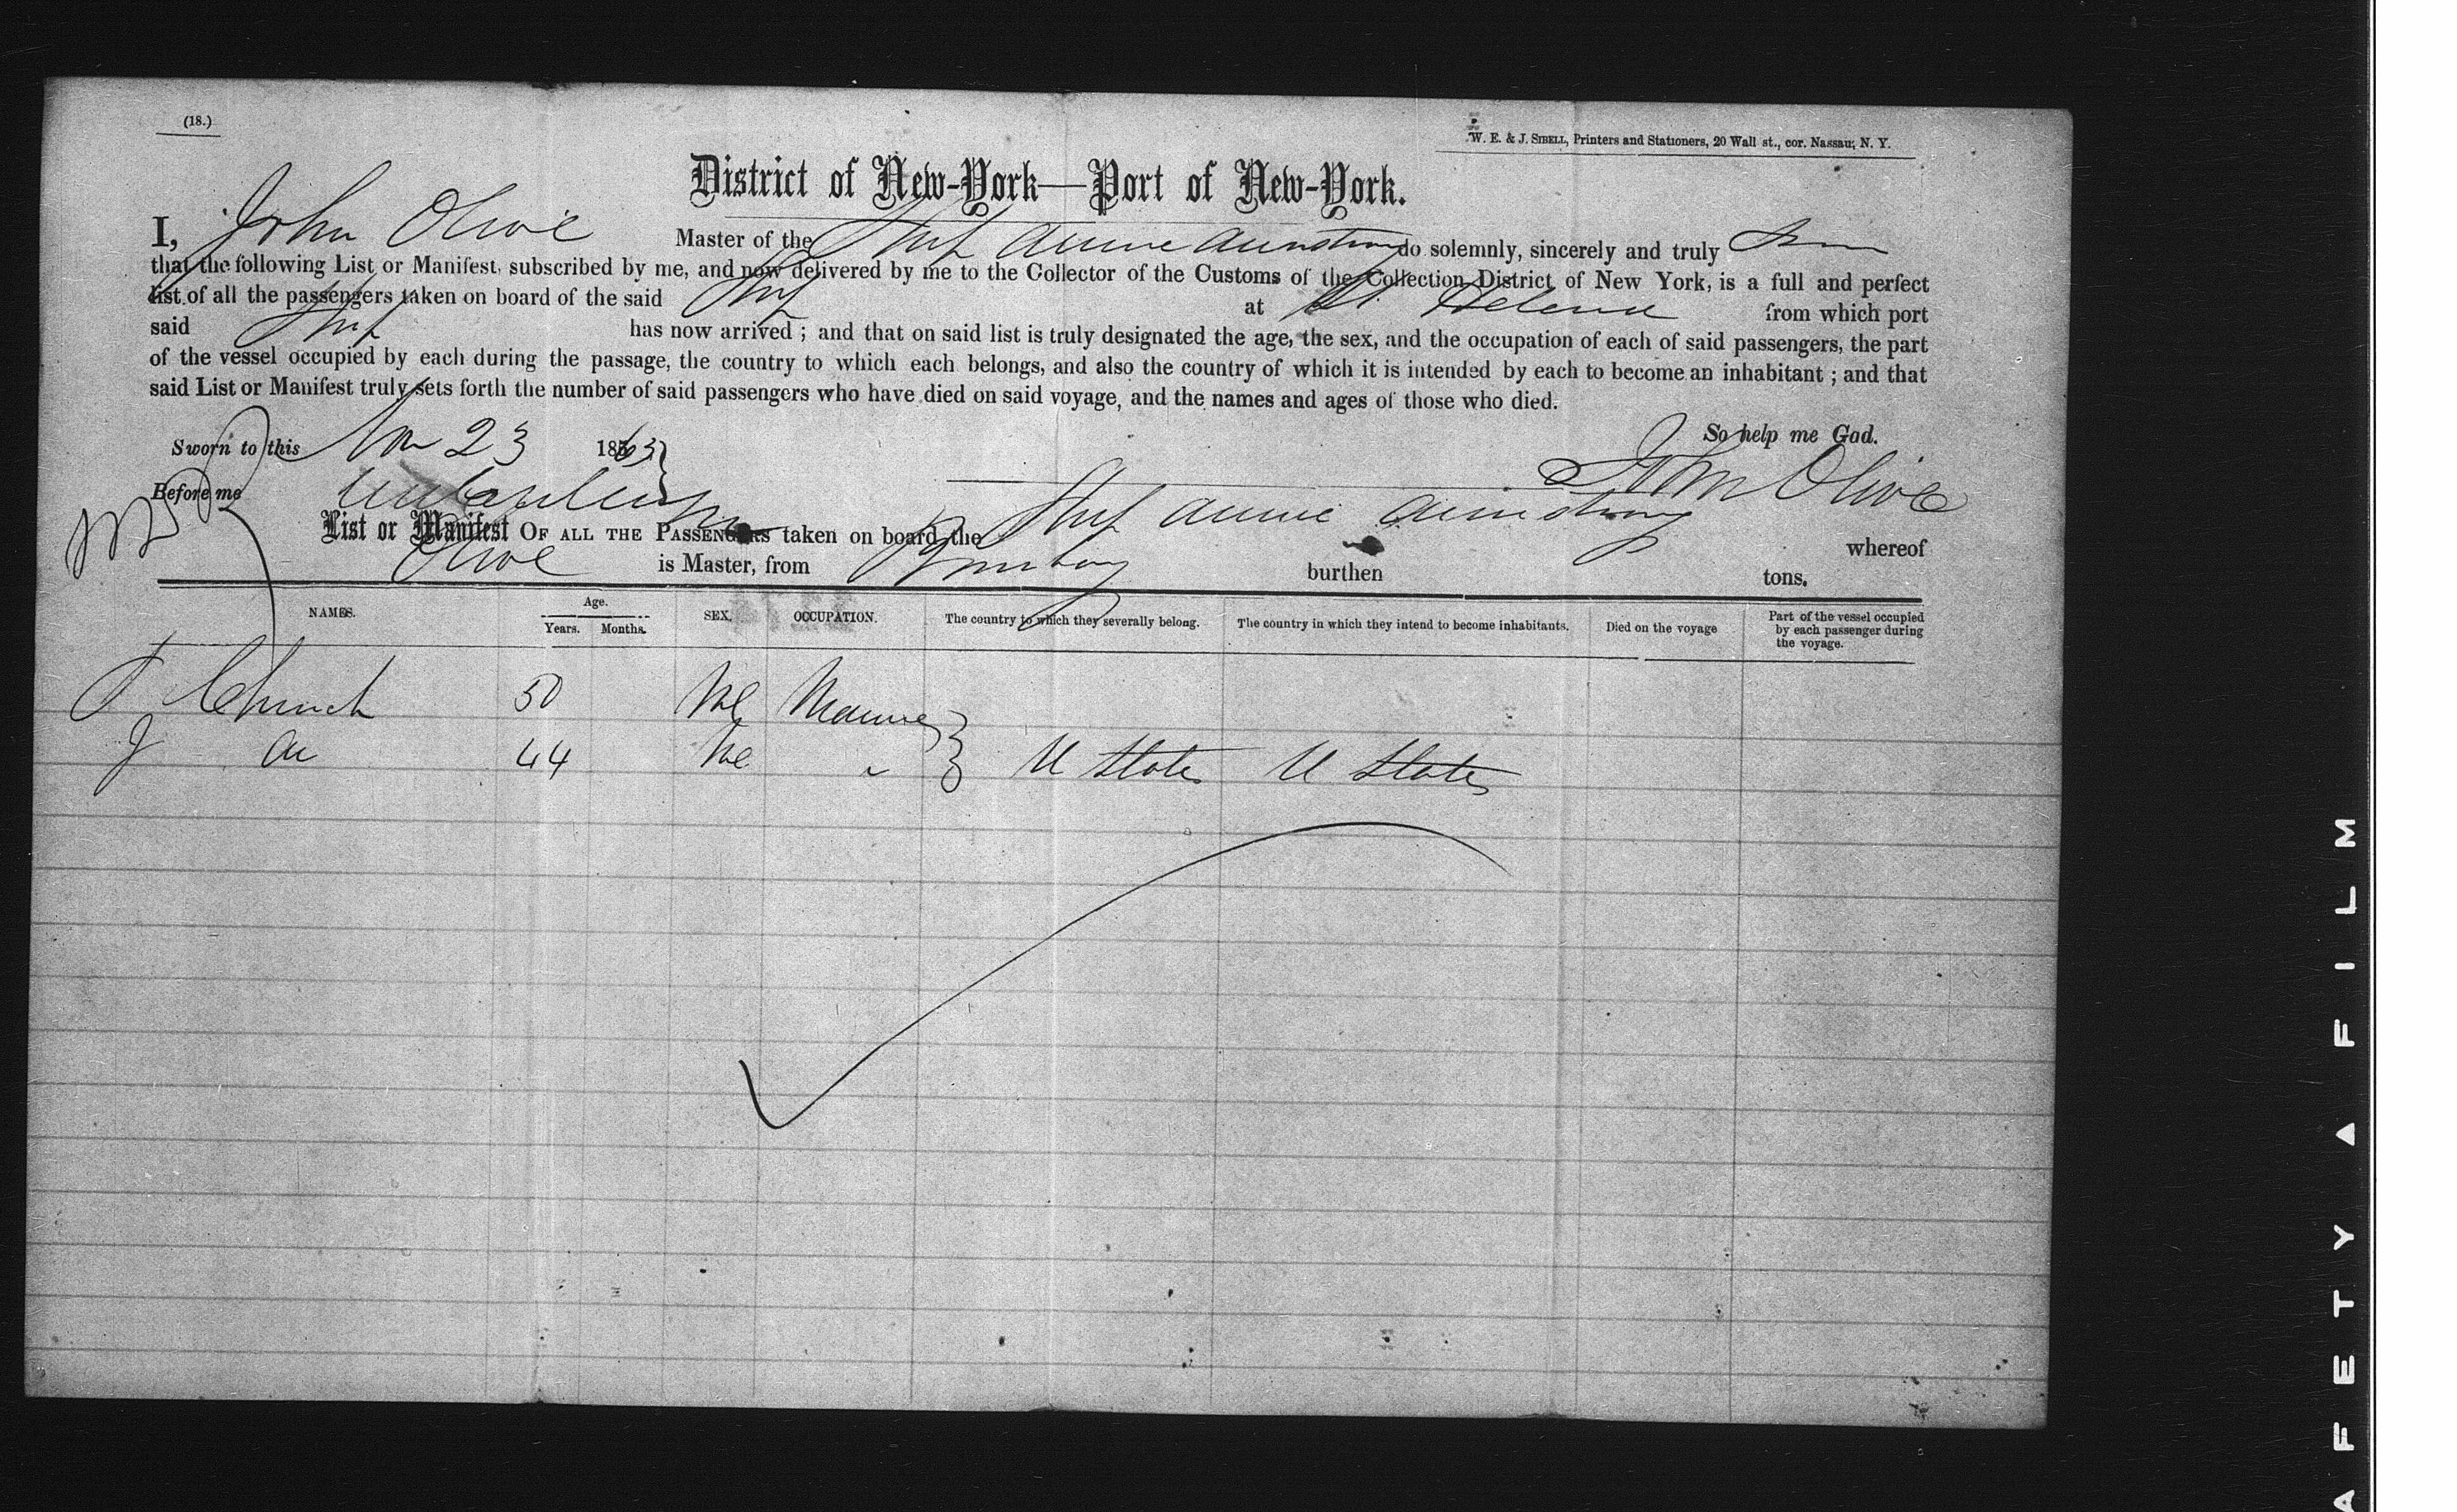 (18.)
W. E. & J. SIBELL, Printers and Stationers, 20 Wall st., cor. Nassau, N. Y.
District of New-York—Port of New-York.
I, John Olive Master of the Ship Annie Armstrong do solemnly, sincerely and truly
that the following List or Manifest, subscribed by me, and now delivered by me to the Collector of the Customs of the Collection District of New York, is a full and perfect
list of all the passengers taken on board of the said Ship at St. Helena from which port
said Ship has now arrived ; and that on said list is truly designated the age, the sex, and the occupation of each of said passengers, the part
of the vessel occupied by each during the passage, the country to which each belongs, and also the country of which it is intended by each to become an inhabitant ; and that
said List or Manifest truly sets forth the number of said passengers who have died on said voyage, and the names and ages of those who died.
So help me God.
Sworn to this Nov 23 1863
John Olive
Before me
List or Manifest OF ALL THE PASSENGERS taken on board the Ship Annie Armstrong whereof
Olive is Master, from Bombay burthen tons.
NAMES. Age. Years. Months. SEX. OCCUPATION. The country to which they severally belong. The country in which they intend to become inhabitants. Died on the voyage Part of the vessel occupied by each passenger during the voyage.
Church 50 Me Marine
J 44 Me " U States U States
SAFETY ▲ FILM